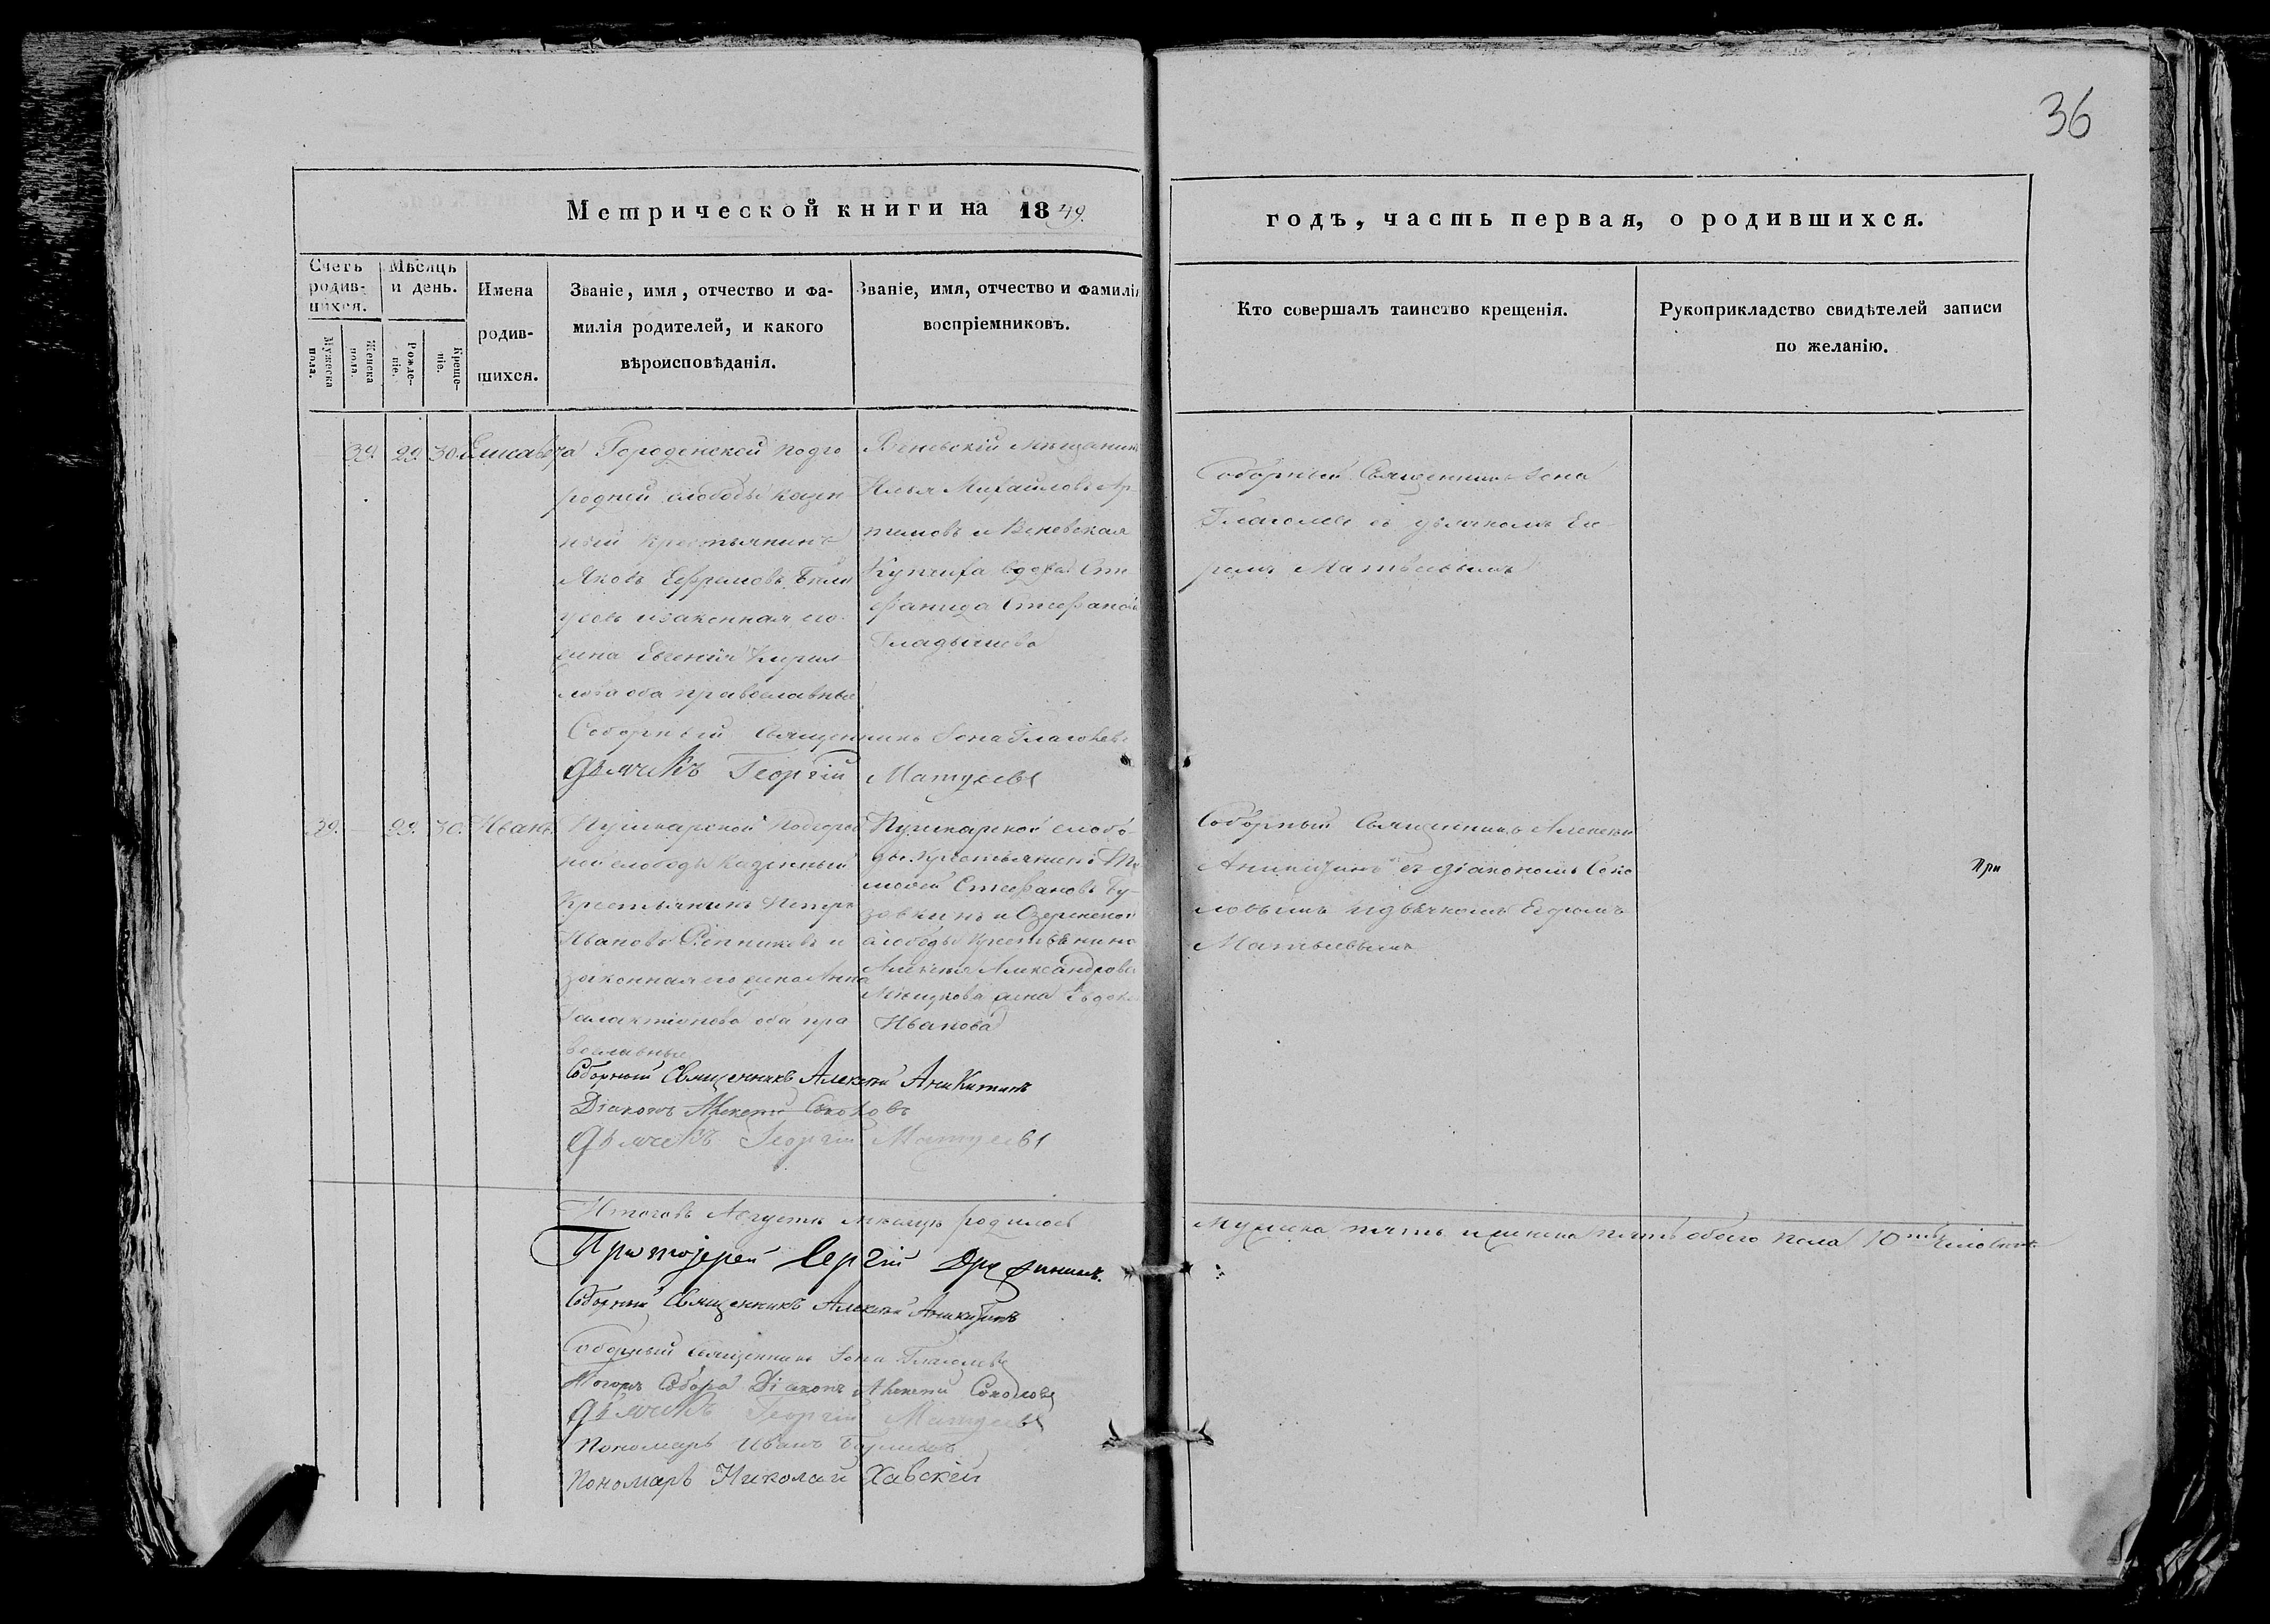 36
Метрической книги на 1849.
годъ, часть первая, о родившихся.
Счетъ родив-шихся.
Мужеска пола.
Женска пола.
Мѣсяцъ и день.
Рожде-ніе.
Креще-ніе.
Имена
родив-
шихся.
Званіе, имя, отчество и фа-
милія родителей, и какого
вѣроисповѣданія.
Званіе, имя, отчество и фамилія
воспріемниковъ.
Кто совершалъ таинство крещенія.
Рукоприкладство свидѣтелей записи
по желанію.
39. 29. 30. Елисавета
Городенской подго
родней слободы казен
ный крестьянинъ
Яковъ Ефремовъ
и законная его
жена Евгенія Кирил
лова оба православные
Веневскій мѣщанинъ
Илья Михаиловъ Ар
тамовъ и Веневская
Купчиха вдова Сте
фанида Стефанова
Гладышева
Соборный Священникъ Іона
Глаголевъ съ дьячкомъ Его
ромъ Матвѣевымъ
Соборный Священникъ Іона Глаголевъ
Дьячекъ Георгій Матвѣевъ
39. — 29. 30. Иванъ
Пушкарской подгород
ной слободы казенный
Крестьянинъ Петръ
Ивановъ Рѣпниковъ и
законная его жена Анна
Галактіонова оба пра
вославные
Пушкарской слобо
ды Крестьянинъ Ти
мофей Стефановъ Гу
зовкинъ и Озеренской
слободы крестьянина
Алексѣя Александрова
жена Евдокія
Иванова
Соборный Священникъ Алексѣй
Аникитинъ съ діакономъ Соко
ловымъ и дьячкомъ Егоромъ
Матвѣевымъ
При
Соборный Священникъ Алексѣй Аникитинъ
Діаконъ Алексѣй Соколовъ
Дьячекъ Георгій Матвѣевъ
Итого въ Августѣ мѣсяцѣ родилось
мужеска пять и женска пять обоего пола 10ть человѣкъ
Протоіерей Сергій Дружининъ.
Соборный Священникъ Алексѣй Аникитинъ
Соборный Священникъ Іона Глаголевъ
Тогожъ Собора Діаконъ Алексѣй Соколовъ
Дьячекъ Георгій Матвѣевъ
Пономарь Иванъ
Пономарь Николай Хавскій